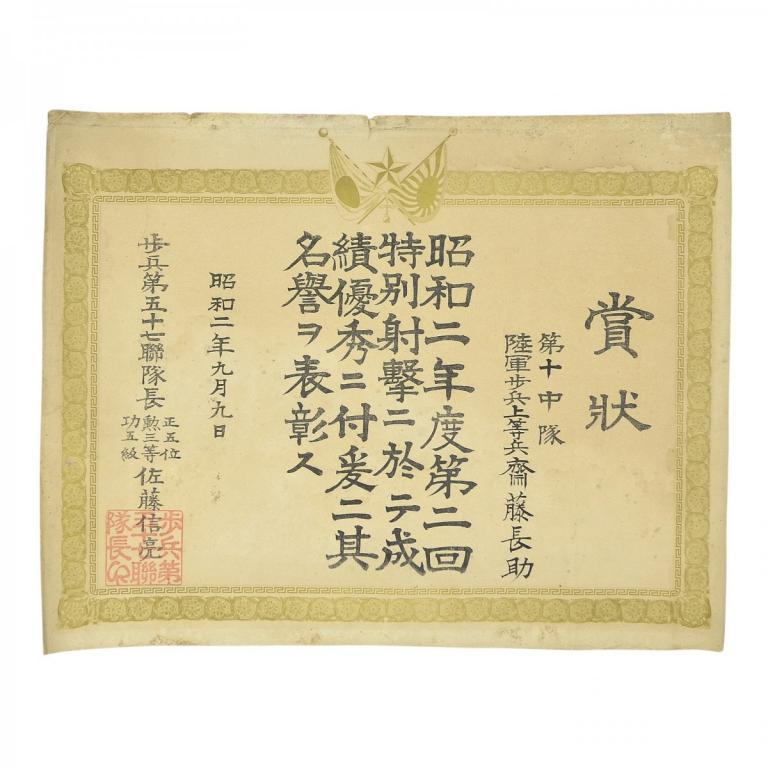 賞狀
第十中隊
陸軍歩兵上等兵齋藤長助
昭和二年度第二回
特別射擊ニ於テ成
績優秀ニ付爰ニ其
名譽ヲ表彰ス
昭和二年九月九日
歩兵第五十七聯隊長
正五位
勲三等
功五級
佐藤信亮
歩兵第
隊長